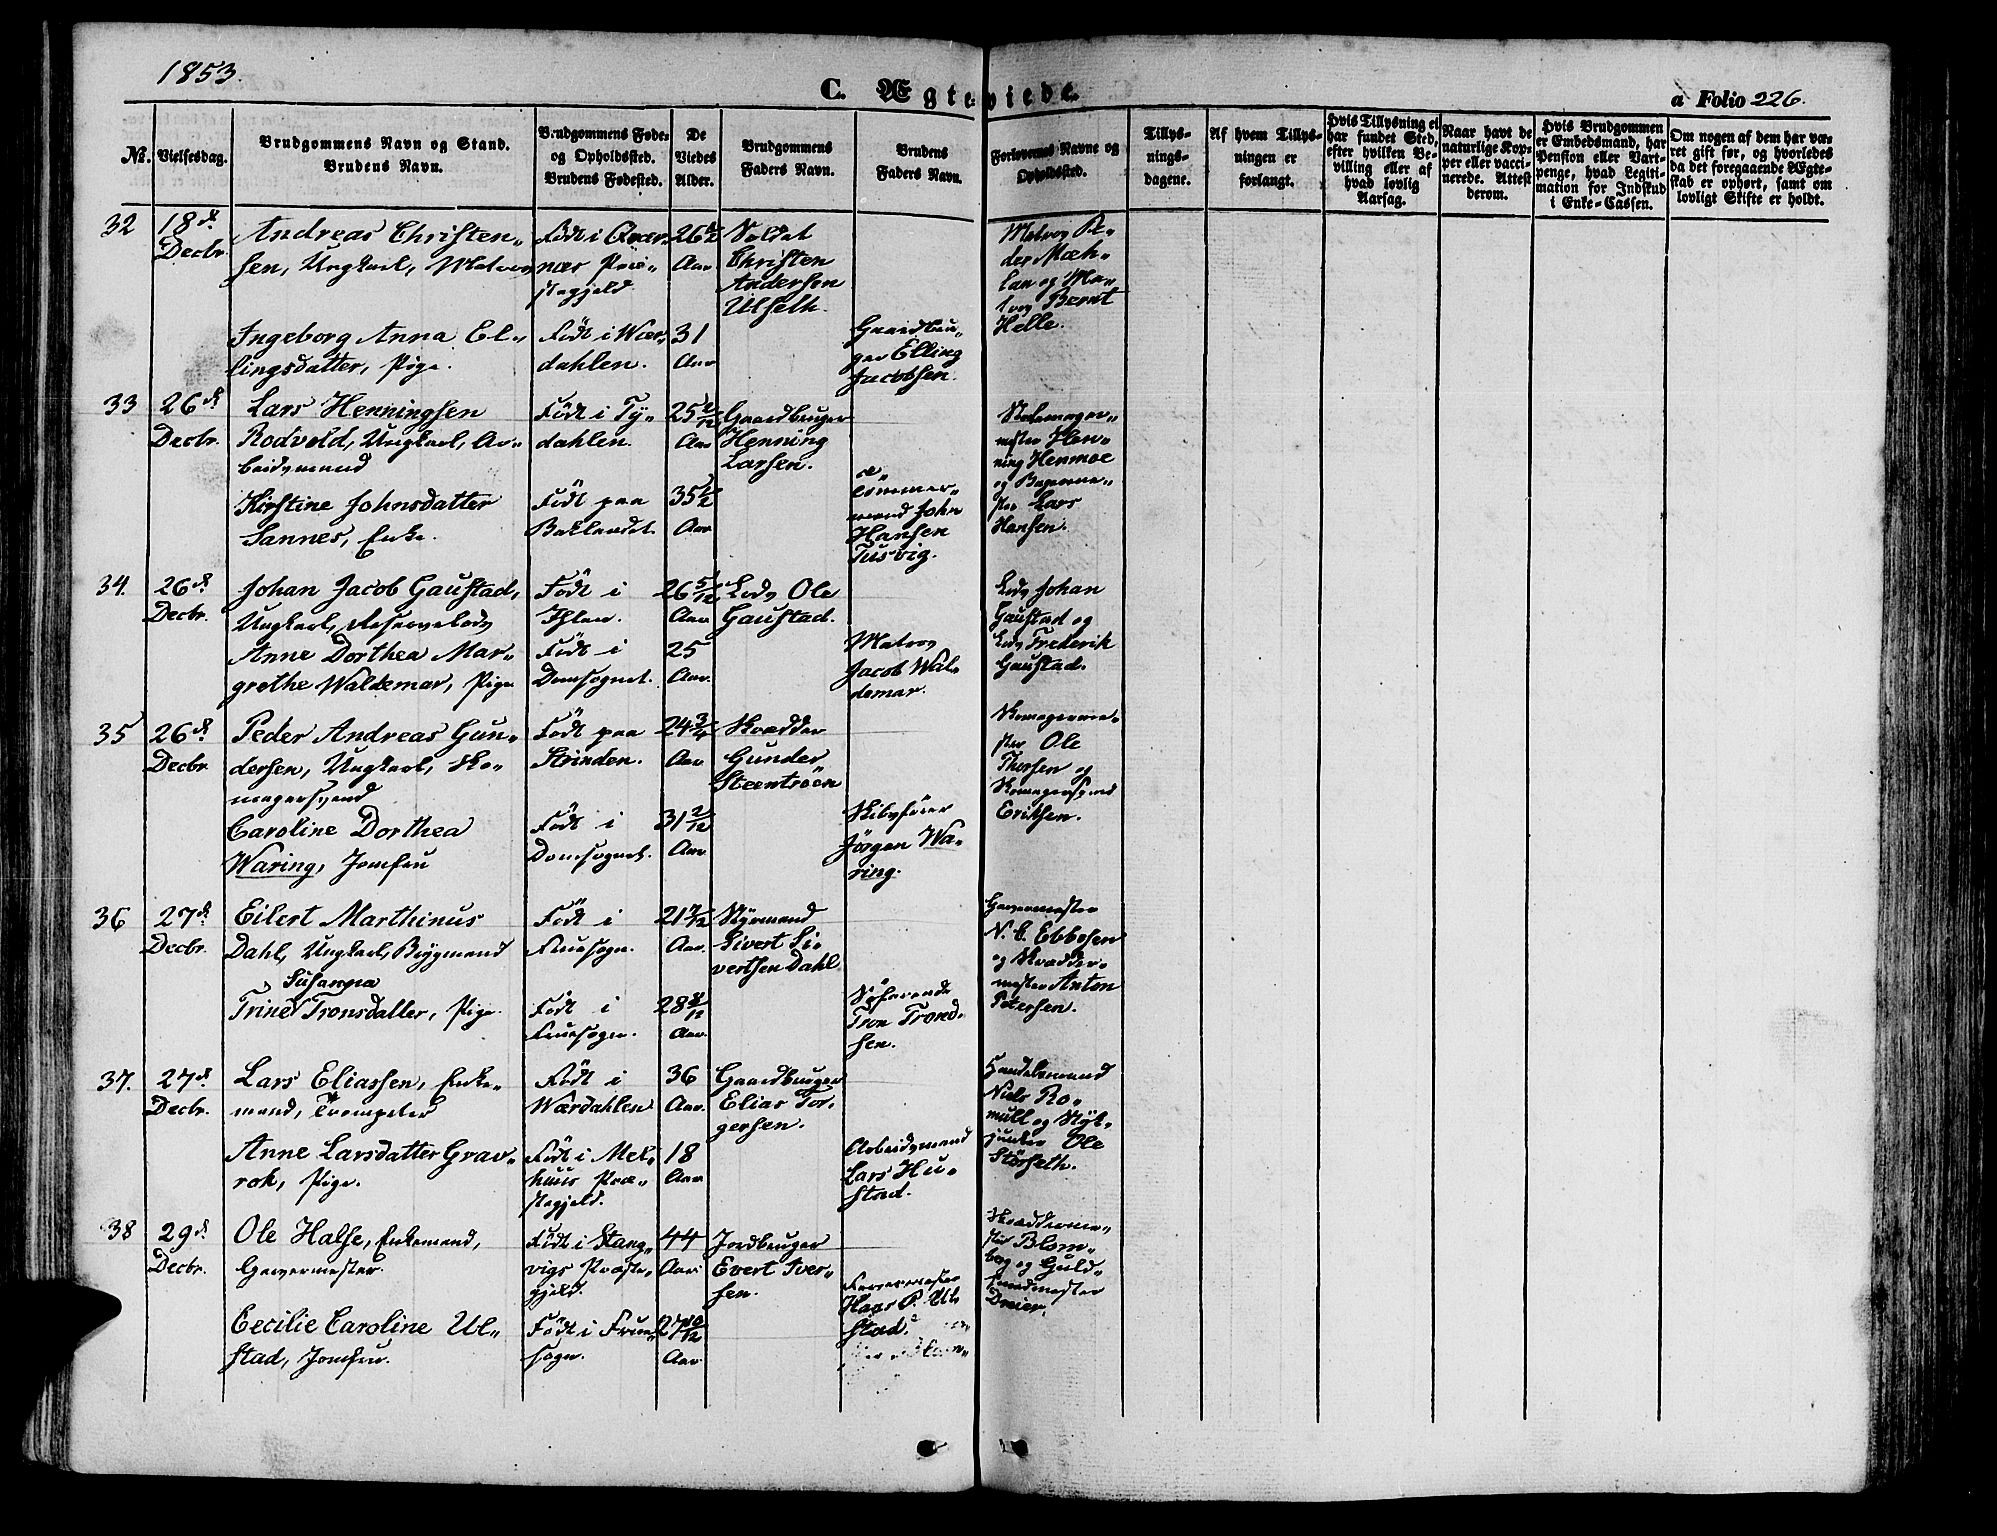 1853.
C. Ægteviede.
a Folio 226.
Nr.
Vielsesdag.
Brudgommens Navn og Stand.
Brudens Navn.
Brudgommens Føde-
og Opholdssted.
Brudens Fødested.
De
Viedes
Alder.
Brudgommens
Faders Navn.
Brudens
Faders Navn.
Forlovernes Navne og
Opholdssted.
Tillys-
nings-
dagene.
Af hvem Tillys-
ningen er
forlangt.
Hvis Tillysning ei
har fundet Sted,
efter hvilken Be-
villing eller af
hvad lovlig
Aarsag.
Naar havt de
naturlige Kop-
per eller vacci-
nerede. Attest
derom.
Hvis Brudgommen
er Embedsmand, har
Pension eller Vart-
penge, hvad Legiti-
mation for Indskud
i Enke-Cassen.
Om nogen af dem har væ-
ret gift før, og hvorledes
da det foregaaende Ægte-
skab er ophørt, samt om
lovligt Skifte er holdt.
32
18de
Decbr.
Andreas Christen-
sen, Ungkarl, Matros
Født i Qvær-
næs Præ-
stegjeld
26
Aar
Soldat
Christen
Andersen
Ulseth.
Matros Pe-
der Mæh-
lan og Ma-
tros Bernt
Helle.
Ingeborg Anna El-
lingsdatter, Pige.
Født i Wær-
dahlen.
31
Aar
Gaardbru-
ger Elling
Jacobsen.
33
26de
Decbr.
Lars Henningsen
Rodvold, Ungkarl, Ar-
beidsmand
Født i Ty-
dahlen.
25 2/12
Aar
Gaardbruger
Henning
Larsen.
Skomager-
mester Hen-
ning Henmoe
og Bagerme-
ster Lars
Hansen.
Kirstine Johnsdatter
Sannes, Enke.
Født paa
Baklandet.
35 1/2
Aar
Tømmer-
mand John
Hansen
Tusvig.
34.
26de
Decbr.
Johan Jacob Gaustad,
Ungkarl, Reservelods
Født i
Ihlen.
26 5/12
Aar
Lods Ole
Gaustad.
Lods Johan
Gaustad og
Lods Frederik
Gaustad.
Anne Dorthea Mar-
grethe Waldemar, Pige
Født i
Domsognet.
25
Aar.
Matros
Jacob Wal-
demar.
35
26de
Decbr.
Peder Andreas Gun-
dersen, Ungkarl, Sko-
magersvend
Født paa
Strinden.
24 3/4
Aar
Skrædder
Gunder
Steentrøen
Skomagerme-
ster Ole
Thorsen og
Skomagersvend
Eriksen.
Caroline Dorthea
Waring, Jomfru
Født i
Domsognet.
31 2/12
Aar
Skibsfører
Jørgen Wa-
ring.
36
27de
Decbr.
Eilert Marthinus
Dahl, Ungkarl, Brygmand
Født i
Fruesogn.
21 7/12
Aar.
Styrmand
Sivert Si-
vertsen Dahl
Garvermester
N. C. Ebbesen
og Skrædder-
mester Anton
Petersen.
Susanna
Trine Tronsdatter, Pige.
Født i
Fruesogn.
28
Aar.
Søfarende
Tron Trond-
sen.
37.
27de
Decbr.
Lars Eliassen, Enke-
mand, Trompeter
Født i
Wærdahlen
36
Aar.
Gaardbruger
Elias Tor-
gersen.
Handelsmand
Niels Ro-
mull og Styk-
junker Ole
Störseth.
Anne Larsdatter Grav-
rok, Pige.
Født i Mel-
huus Præ-
stegjeld.
18
Aar
Arbeidsmand
Lars Hu-
stad.
38
29de
Decbr.
Ole Halse, Enkemand,
Garvermester.
Født i Stang-
vigs Præste-
gjeld.
44
Aar
Jordbruger
Evert Iver-
sen.
Skrædderme-
ster Blom-
berg og Guld-
smedmester
Dreier.
Cecilie Caroline Ul-
stad, Jomfru.
Født i Frue-
sogn.
27 10/12
Aar
Hans P. Ul-
stad.